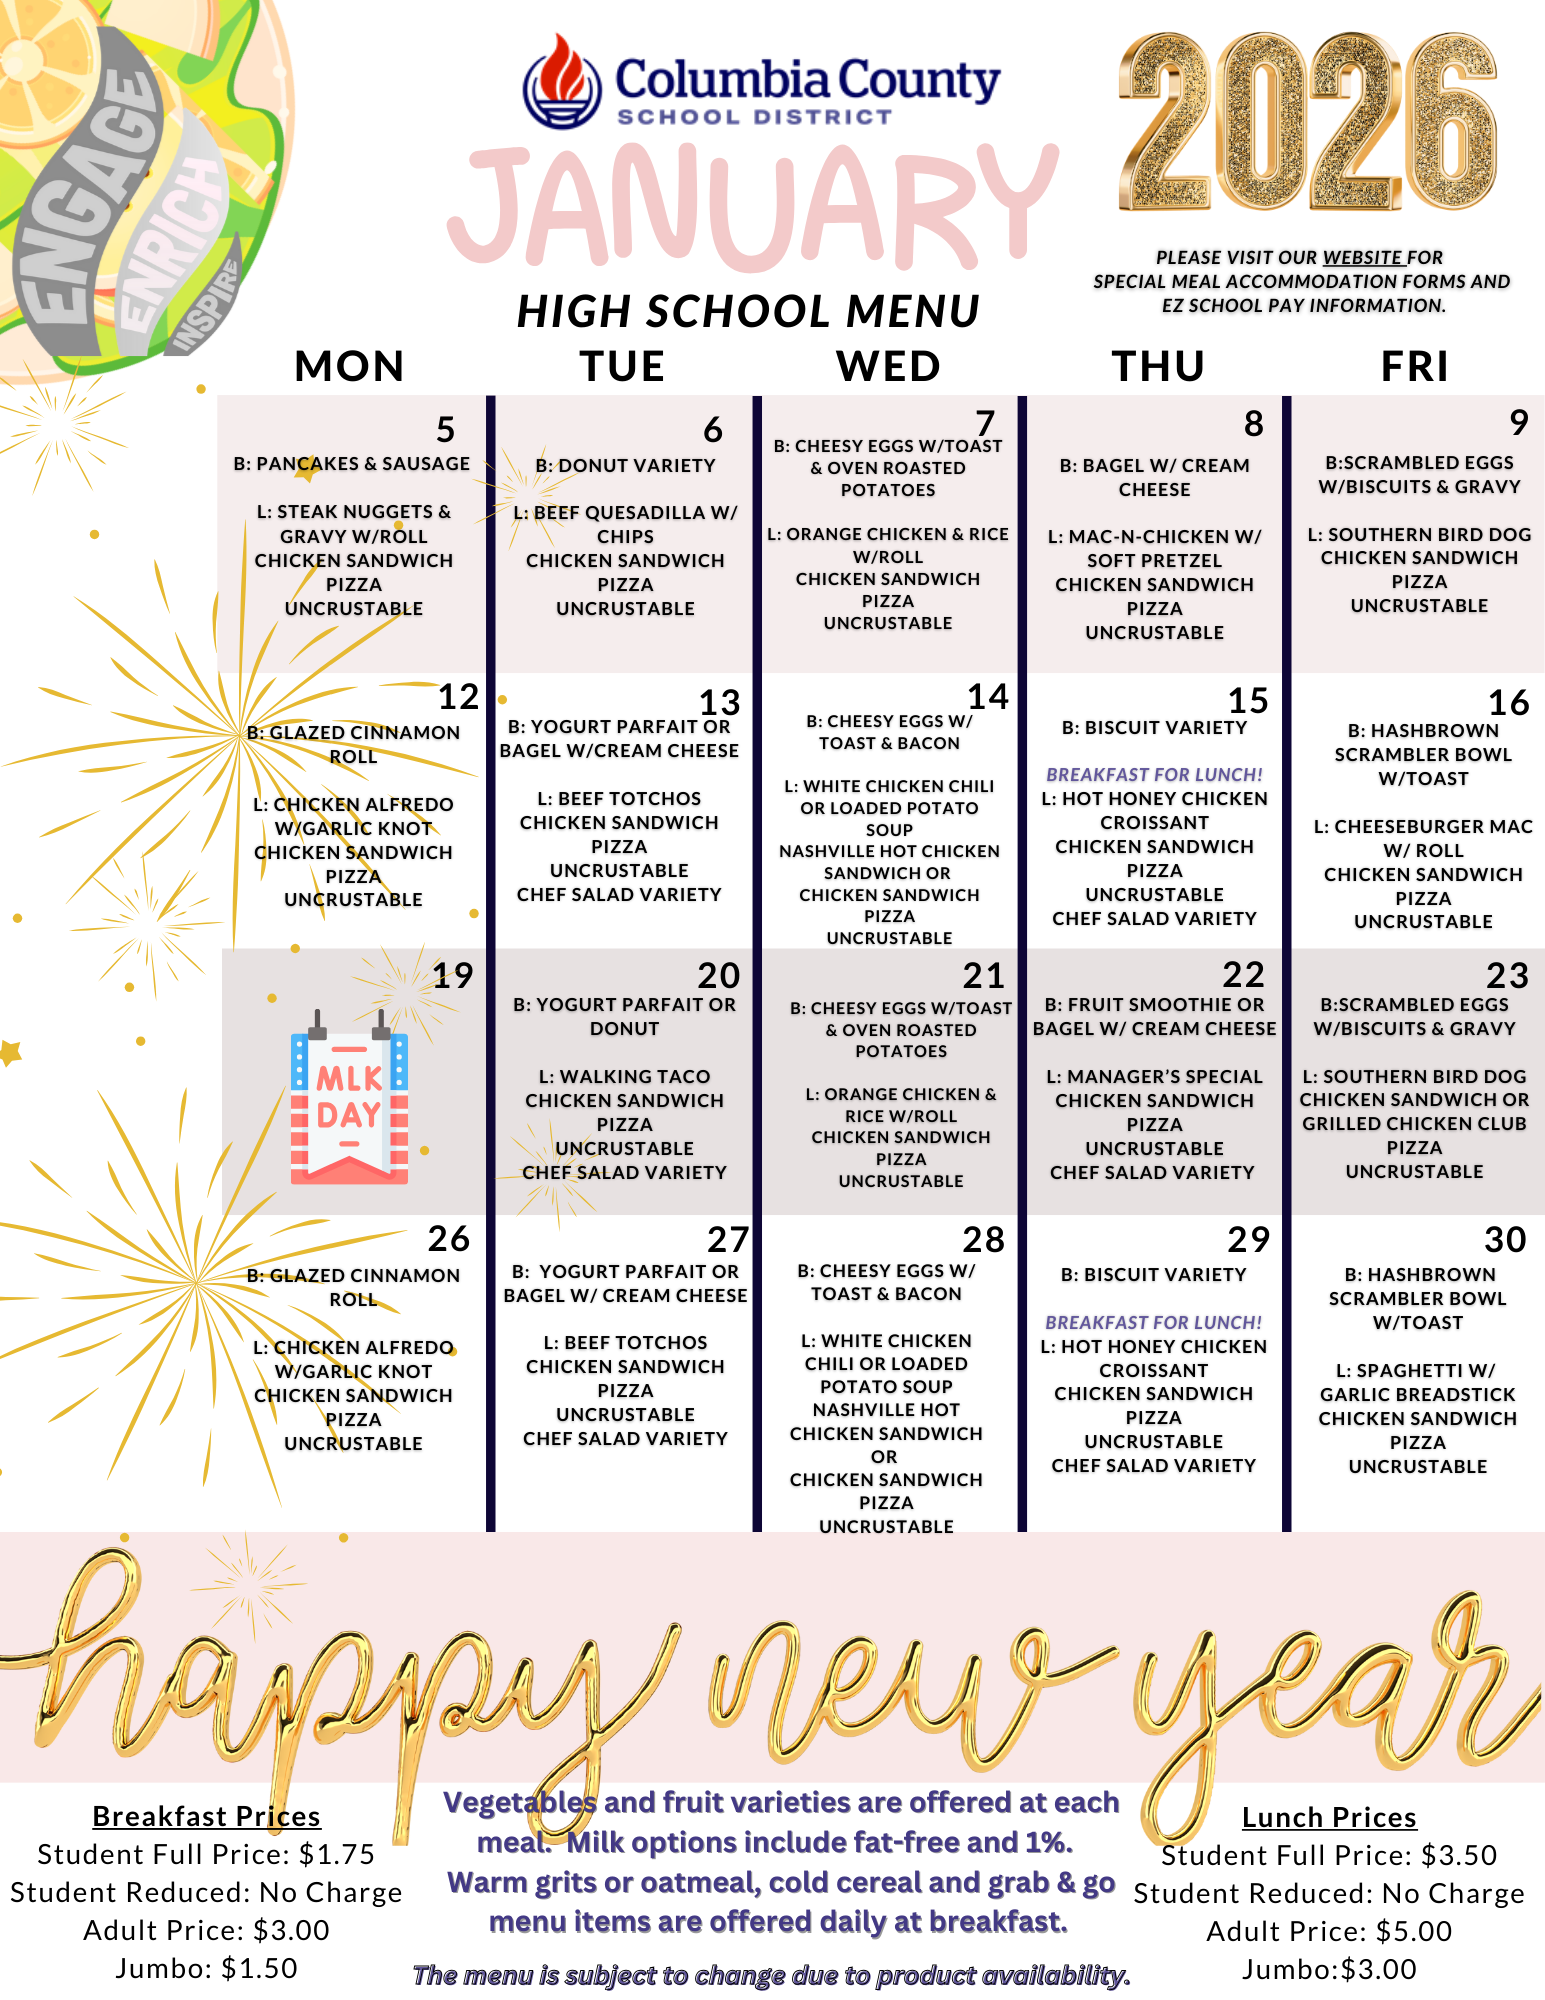 ENGAGE
ENRICH
INSPIRE
Columbia County
SCHOOL DISTRICT
JANUARY
2026
PLEASE VISIT OUR WEBSITE FOR
SPECIAL MEAL ACCOMMODATION FORMS AND
EZ SCHOOL PAY INFORMATION.
HIGH SCHOOL MENU
MON
TUE
WED
THU
FRI
5
B: PANCAKES & SAUSAGE
L: STEAK NUGGETS &
GRAVY W/ROLL
CHICKEN SANDWICH
PIZZA
UNCRUSTABLE
6
B: DONUT VARIETY
L: BEEF QUESADILLA W/
CHIPS
CHICKEN SANDWICH
PIZZA
UNCRUSTABLE
7
B: CHEESY EGGS W/TOAST
& OVEN ROASTED
POTATOES
L: ORANGE CHICKEN & RICE
W/ROLL
CHICKEN SANDWICH
PIZZA
UNCRUSTABLE
8
B: BAGEL W/ CREAM
CHEESE
L: MAC-N-CHICKEN W/
SOFT PRETZEL
CHICKEN SANDWICH
PIZZA
UNCRUSTABLE
9
B:SCRAMBLED EGGS
W/BISCUITS & GRAVY
L: SOUTHERN BIRD DOG
CHICKEN SANDWICH
PIZZA
UNCRUSTABLE
12
B: GLAZED CINNAMON
ROLL
L: CHICKEN ALFREDO
W/GARLIC KNOT
CHICKEN SANDWICH
PIZZA
UNCRUSTABLE
13
B: YOGURT PARFAIT OR
BAGEL W/CREAM CHEESE
L: BEEF TOTCHOS
CHICKEN SANDWICH
PIZZA
UNCRUSTABLE
CHEF SALAD VARIETY
14
B: CHEESY EGGS W/
TOAST & BACON
L: WHITE CHICKEN CHILI
OR LOADED POTATO
SOUP
NASHVILLE HOT CHICKEN
SANDWICH OR
CHICKEN SANDWICH
PIZZA
UNCRUSTABLE
15
B: BISCUIT VARIETY
BREAKFAST FOR LUNCH!
L: HOT HONEY CHICKEN
CROISSANT
CHICKEN SANDWICH
PIZZA
UNCRUSTABLE
CHEF SALAD VARIETY
16
B: HASHBROWN
SCRAMBLER BOWL
W/TOAST
L: CHEESEBURGER MAC
W/ ROLL
CHICKEN SANDWICH
PIZZA
UNCRUSTABLE
19
MLK
DAY
20
B: YOGURT PARFAIT OR
DONUT
L: WALKING TACO
CHICKEN SANDWICH
PIZZA
UNCRUSTABLE
CHEF SALAD VARIETY
21
B: CHEESY EGGS W/TOAST
& OVEN ROASTED
POTATOES
L: ORANGE CHICKEN &
RICE W/ROLL
CHICKEN SANDWICH
PIZZA
UNCRUSTABLE
22
B: FRUIT SMOOTHIE OR
BAGEL W/ CREAM CHEESE
L: MANAGER'S SPECIAL
CHICKEN SANDWICH
PIZZA
UNCRUSTABLE
CHEF SALAD VARIETY
23
B:SCRAMBLED EGGS
W/BISCUITS & GRAVY
L: SOUTHERN BIRD DOG
CHICKEN SANDWICH OR
GRILLED CHICKEN CLUB
PIZZA
UNCRUSTABLE
26
B: GLAZED CINNAMON
ROLL
L: CHICKEN ALFREDO
W/GARLIC KNOT
CHICKEN SANDWICH
PIZZA
UNCRUSTABLE
27
B: YOGURT PARFAIT OR
BAGEL W/ CREAM CHEESE
L: BEEF TOTCHOS
CHICKEN SANDWICH
PIZZA
UNCRUSTABLE
CHEF SALAD VARIETY
28
B: CHEESY EGGS W/
TOAST & BACON
L: WHITE CHICKEN
CHILI OR LOADED
POTATO SOUP
NASHVILLE HOT
CHICKEN SANDWICH
OR
CHICKEN SANDWICH
PIZZA
UNCRUSTABLE
29
B: BISCUIT VARIETY
BREAKFAST FOR LUNCH!
L: HOT HONEY CHICKEN
CROISSANT
CHICKEN SANDWICH
PIZZA
UNCRUSTABLE
CHEF SALAD VARIETY
30
B: HASHBROWN
SCRAMBLER BOWL
W/TOAST
L: SPAGHETTI W/
GARLIC BREADSTICK
CHICKEN SANDWICH
PIZZA
UNCRUSTABLE
happy new year
Breakfast Prices
Student Full Price: $1.75
Student Reduced: No Charge
Adult Price: $3.00
Jumbo: $1.50
Vegetables and fruit varieties are offered at each
meal. Milk options include fat-free and 1%.
Warm grits or oatmeal, cold cereal and grab & go
menu items are offered daily at breakfast.
The menu is subject to change due to product availability.
Lunch Prices
Student Full Price: $3.50
Student Reduced: No Charge
Adult Price: $5.00
Jumbo:$3.00